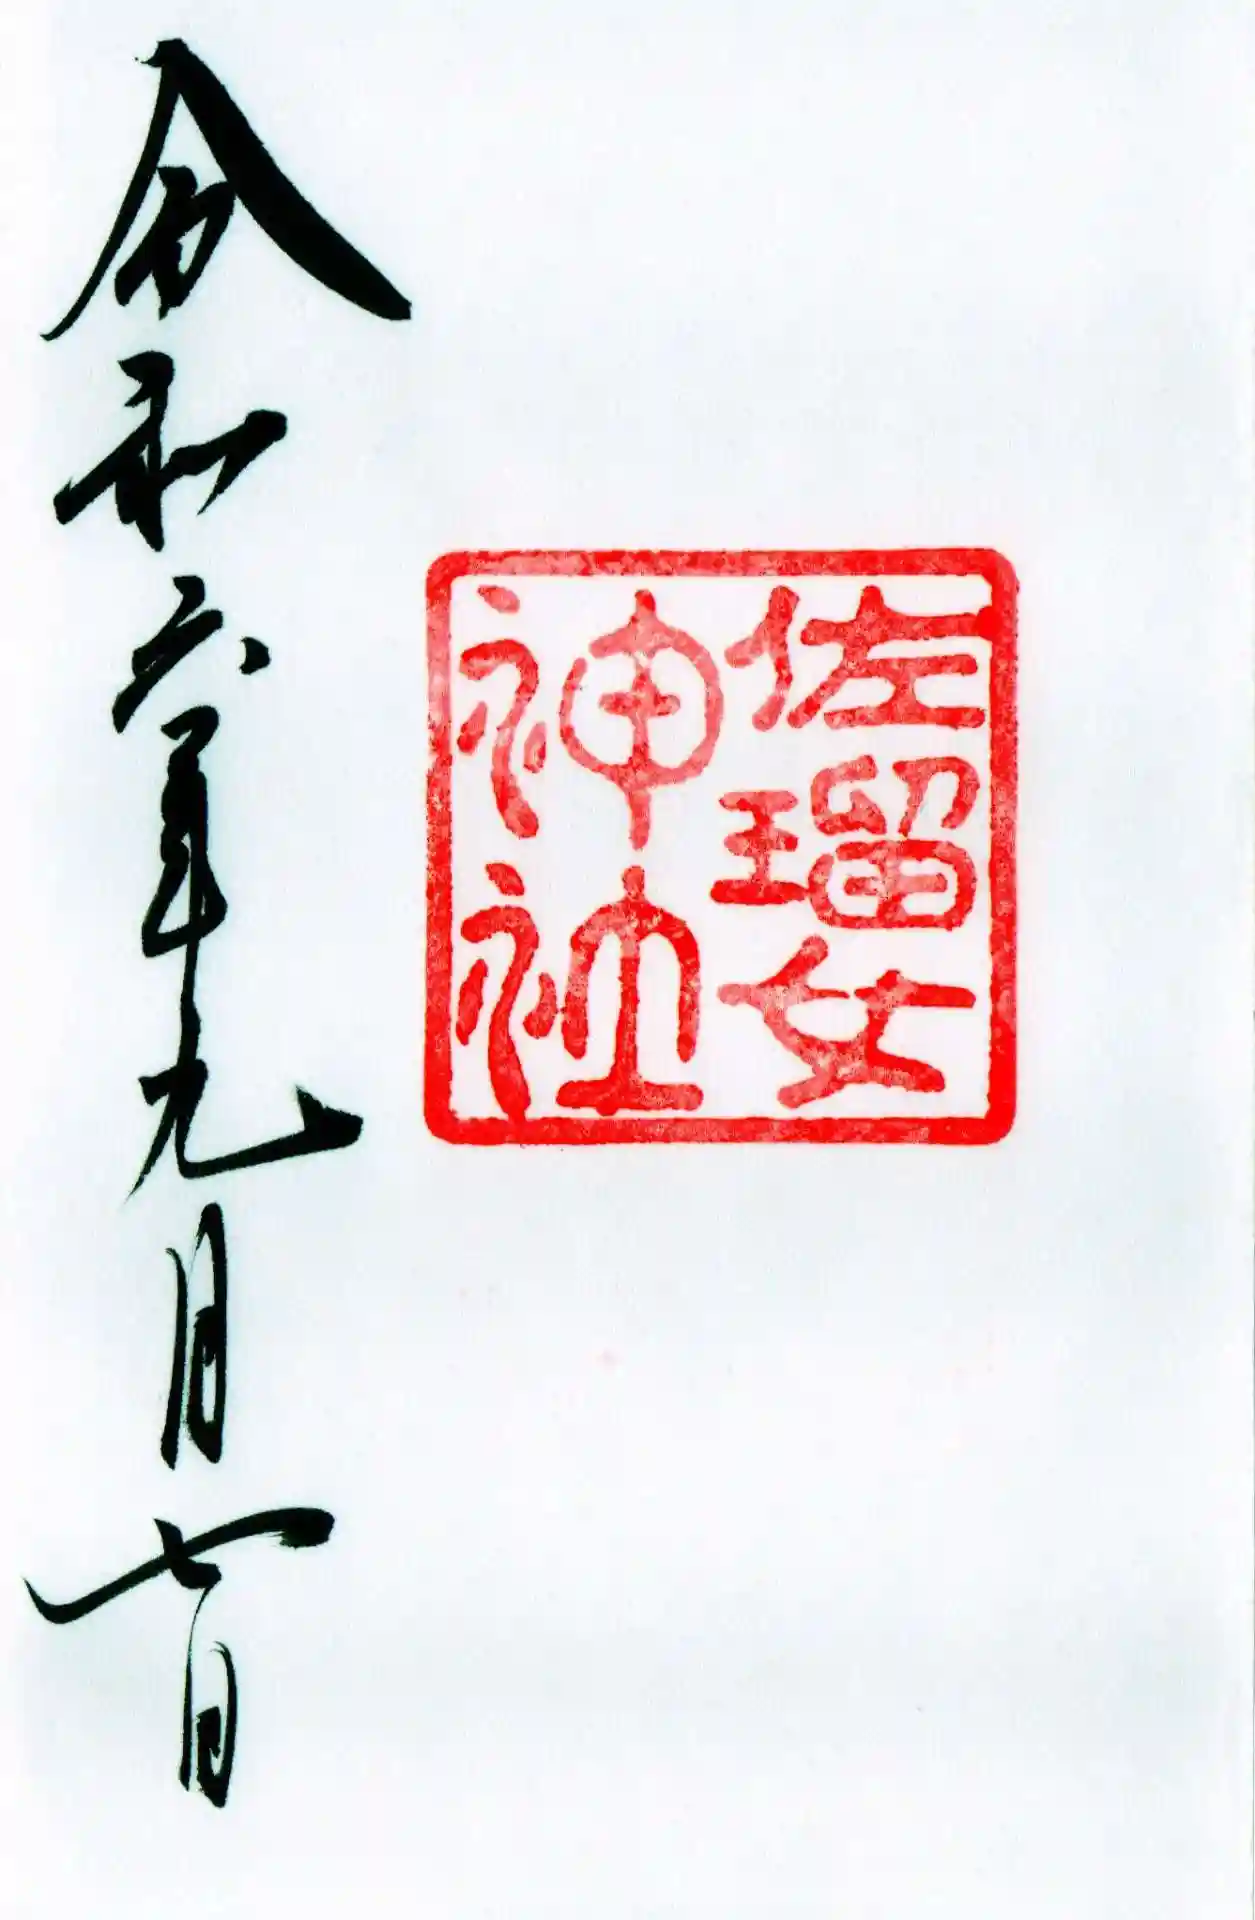 佐瑠女
神社
令和六年九月七日